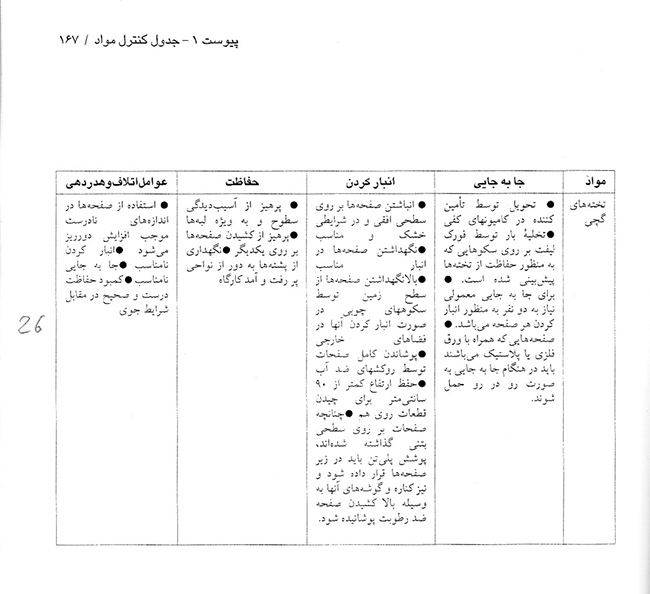 پیوست ۱ - جدول کنترل مواد / ۱۶۷
مواد
تخته‌های
گچی
جا به جایی
● تحویل توسط تأمین
کننده در کامیونهای کفی
● تخلیهٔ بار توسط فورک
لیفت بر روی سکوهایی که
به منظور حفاظت از تخته‌ها
پیش‌بینی شده است. ●
برای جا به جایی معمولی
نیاز به دو نفر به منظور انبار
کردن هر صفحه می‌باشد. ●
صفحه‌هایی که همراه با ورق
فلزی یا پلاستیک می‌باشند
باید در هنگام جا به جایی به
صورت رو در رو حمل
شوند.
انبار کردن
● انباشتن صفحه‌ها بر روی
سطحی افقی و در شرایطی
خشک و مناسب
● نگهداشتن صفحه‌ها در
انبار مناسب
● بالانگهداشتن صفحه‌ها از
سطح زمین توسط
سکوههای چوبی در
صورت انبار کردن آنها در
فضاهای خارجی
● پوشاندن کامل صفحات
توسط روکشهای ضد آب
● حفظ ارتفاع کمتر از ۹۰
سانتی‌متر برای چیدن
قطعات روی هم ● چنانچه
صفحات بر روی سطحی
بتنی گذاشته شده‌اند،
پوشش پلی‌تن باید در زیر
صفحه‌ها قرار داده شود و
نیز کناره و گوشه‌های آنها به
وسیله بالا کشیدن صفحه
ضد رطوبت پوشانیده شود.
حفاظت
● پرهیز از آسیب‌دیدگی
سطوح و به ویژه لبه‌ها
● پرهیز از کشیدن صفحه‌ها
بر روی یکدیگر ● نگهداری
از پشته‌ها به دور از نواحی
پر رفت و آمد کارگاه
عوامل اتلاف و هدردهی
● استفاده از صفحه‌ها در
اندازه‌های نادرست
موجب افزایش دورریز
می‌شود ● انبار کردن
نامناسب ● جا به جایی
نامناسب ● کمبود حفاظت
درست و صحیح در مقابل
شرایط جوی
26